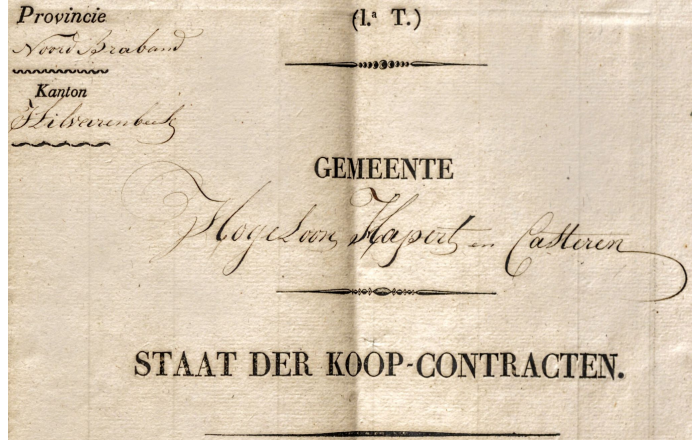 Provincie
Noord Braband
Kanton
Hilvarenbeek
(l.ª T.)
GEMEENTE
Hogeloon, Hapert en Casteren
STAAT DER KOOP-CONTRACTEN.